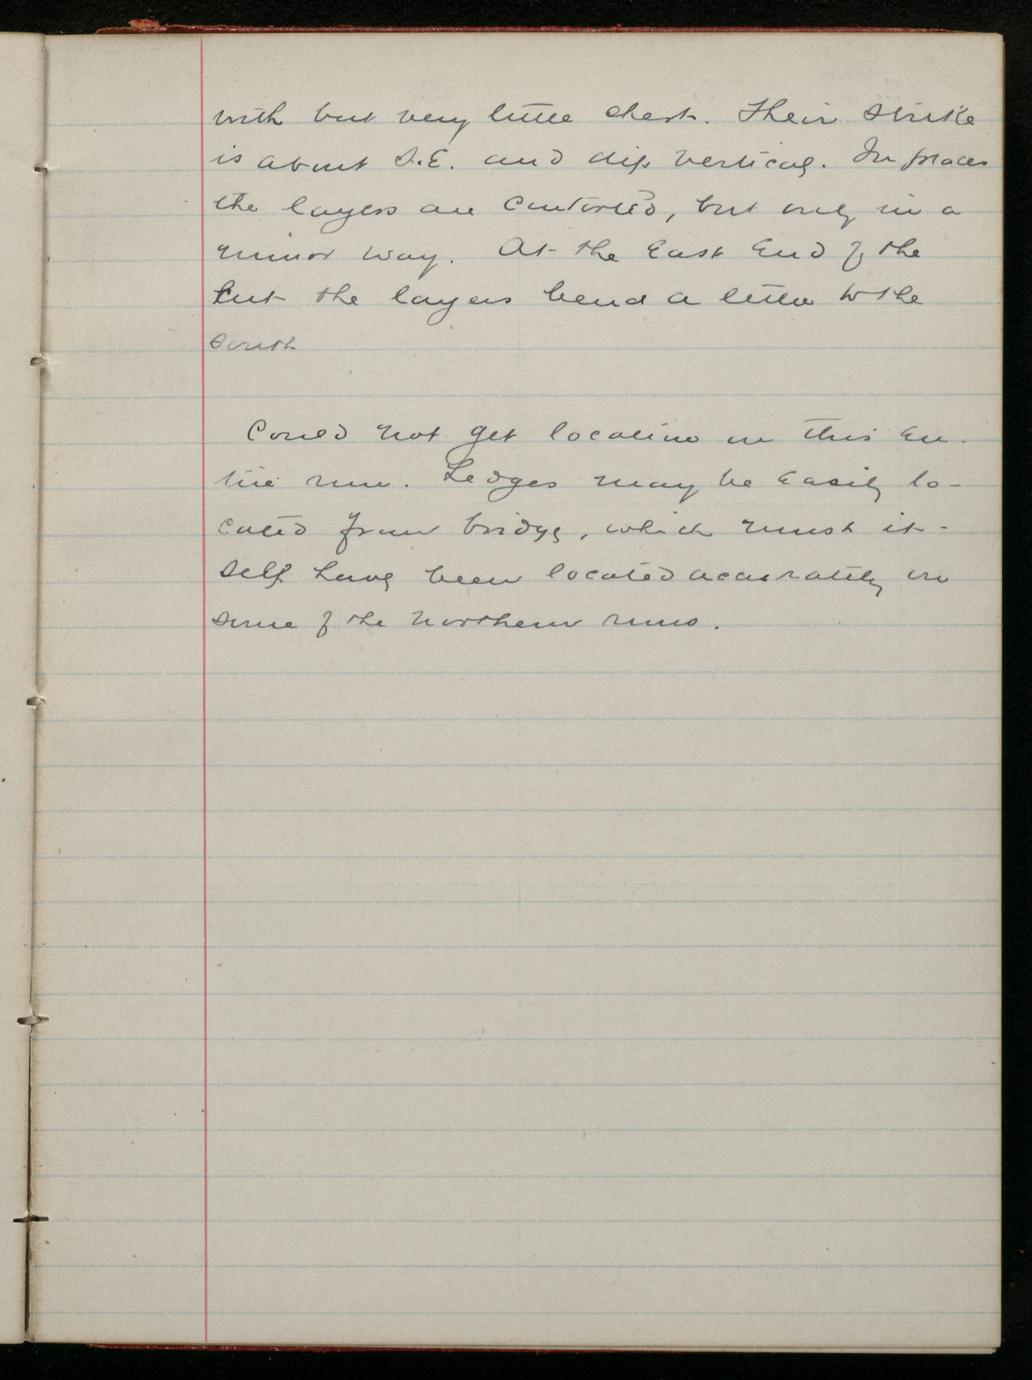 with but very little chert. Their strike
is about S.E. and dip vertical. In places
the layers are contorted, but only in a
minor way. At the East End of the
cut the layers bend a little to the
south
Could not get location in this en-
tire run. Ledges may be easily lo-
cated from bridge, which must it-
self have been located accurately on
some of the northern runs.